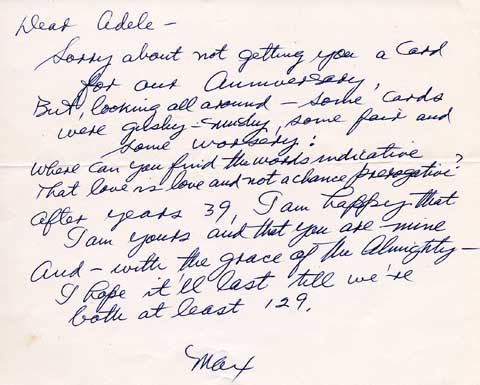 Dear Adele –
Sorry about not getting you a Card
for our Anniversary,
But, looking all around – some cards
were gushy – mushy, some fair and
some worsery:
Where can you find the words indicative
That love is love and not a chance prerogative?
After years 39, I am happy that
I am yours and that you are mine
And – with the grace of the Almighty –
I hope it'll last till we're
both at least 129.
Max